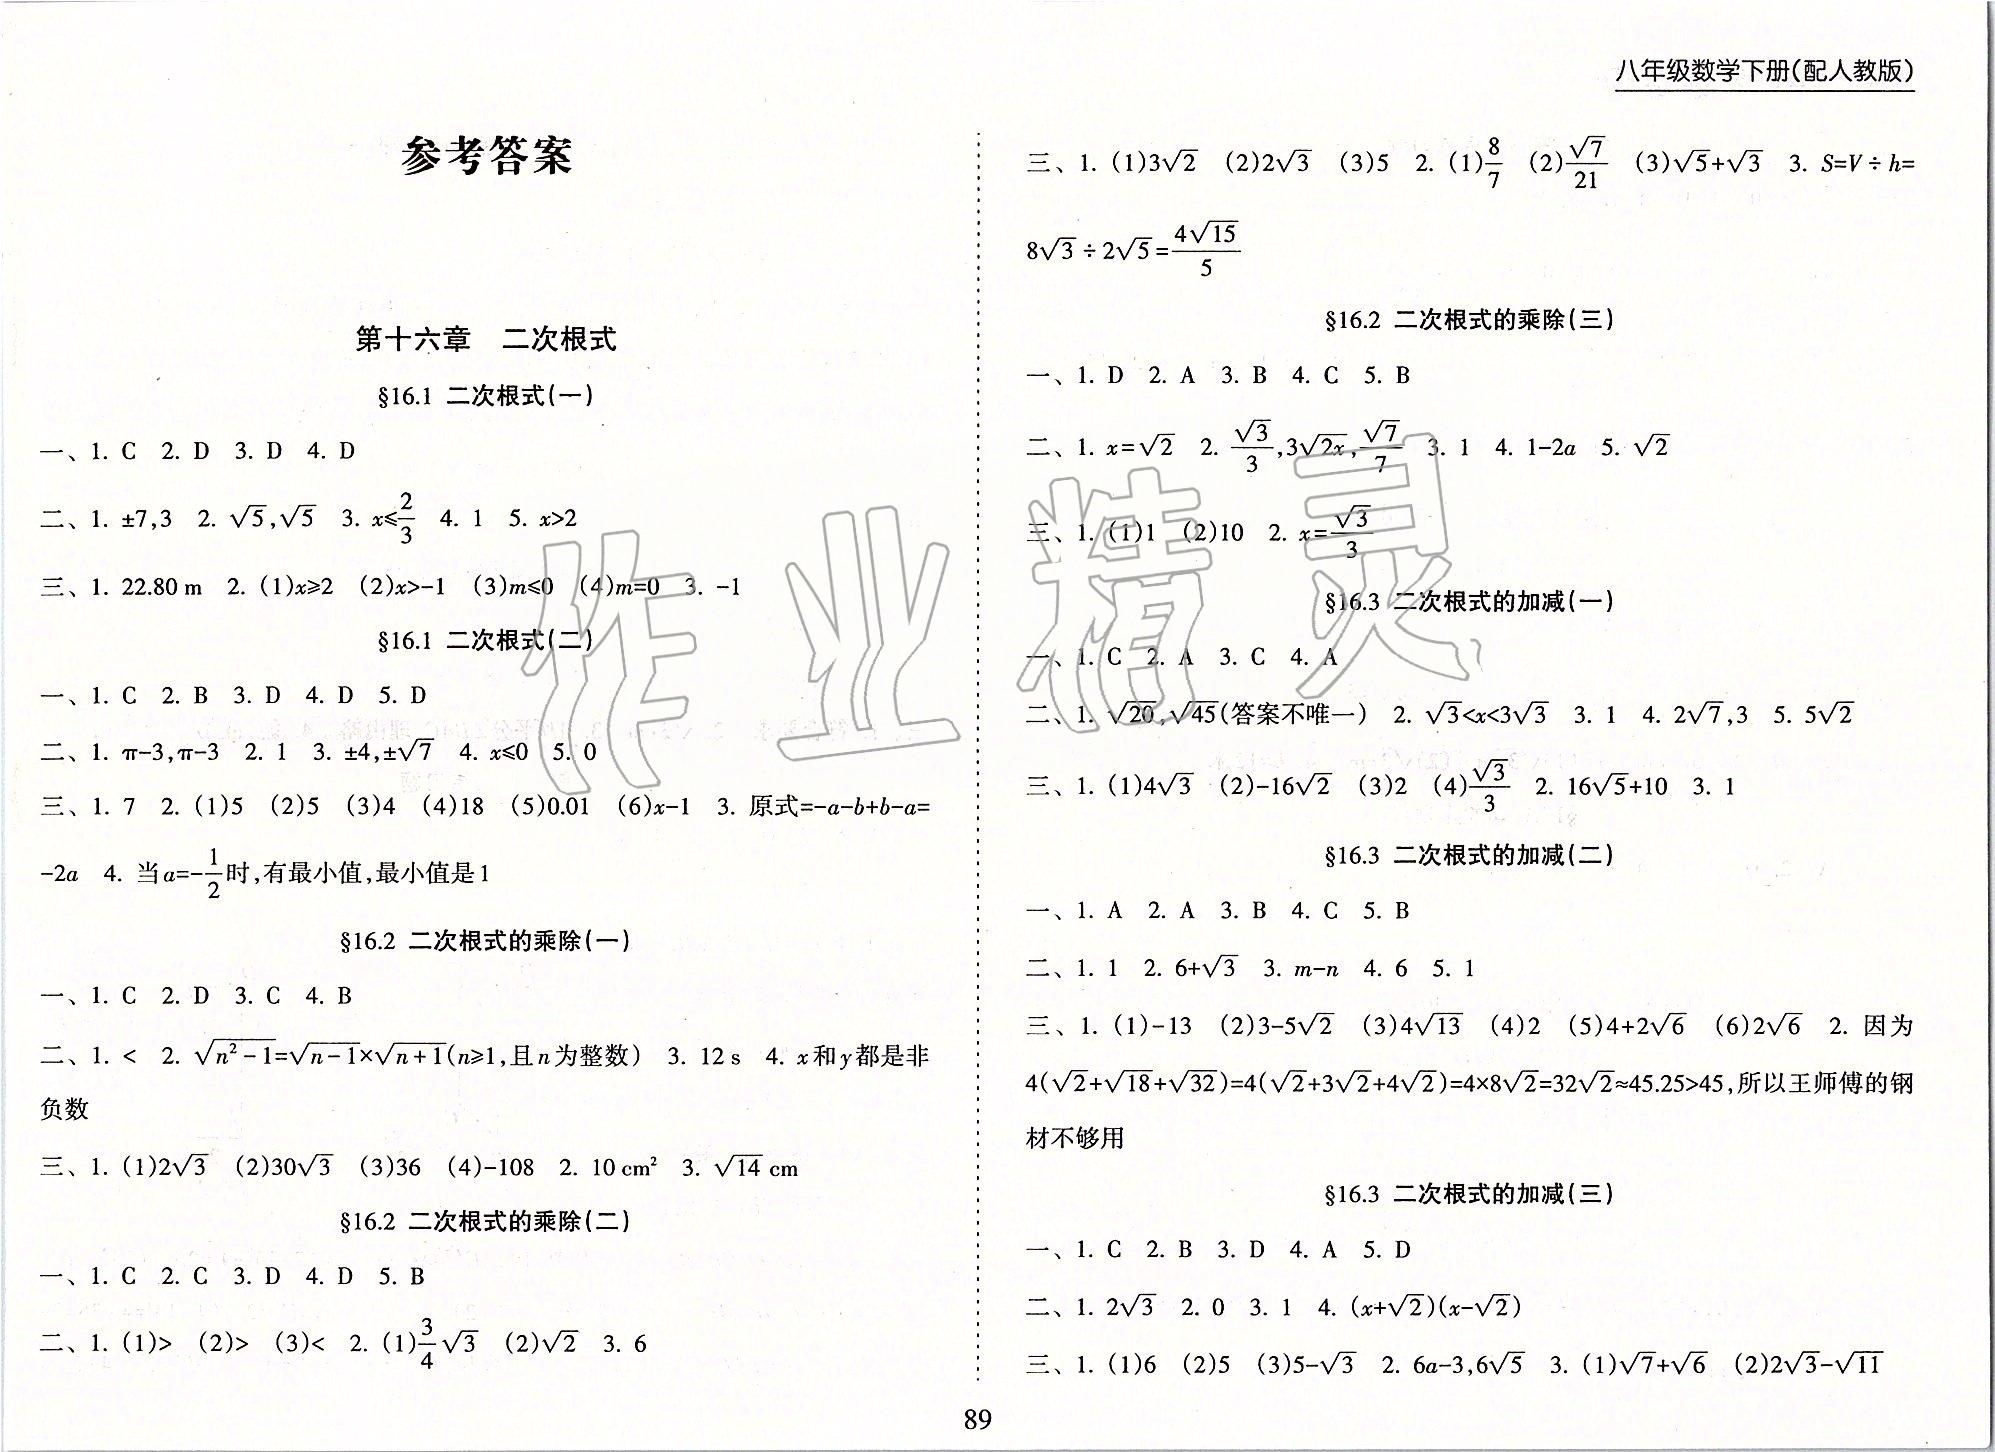 八年级数学下册(配人教版)
参考答案
第十六章 二次根式
§16.1 二次根式(一)
一、1. C 2. D 3. D 4. D
二、1. ±7,3 2. √5,√5 3. x≤2/3 4. 1 5. x>2
三、1. 22.80 m 2. (1)x≥2 (2)x>-1 (3)m≤0 (4)m=0 3. -1
§16.1 二次根式(二)
一、1. C 2. B 3. D 4. D 5. D
二、1. π-3,π-3 2. 1 3. ±4,±√7 4. x≤0 5. 0
三、1. 7 2. (1)5 (2)5 (3)4 (4)18 (5)0.01 (6)x-1 3. 原式=-a-b+b-a=
-2a 4. 当a=-1/2时,有最小值,最小值是1
§16.2 二次根式的乘除(一)
一、1. C 2. D 3. C 4. B
二、1. < 2. √(n²-1)=√(n-1)×√(n+1)(n≥1,且n为整数) 3. 12 s 4. x和y都是非
负数
三、1. (1)2√3 (2)30√3 (3)36 (4)-108 2. 10 cm² 3. √14 cm
§16.2 二次根式的乘除(二)
一、1. C 2. C 3. D 4. D 5. B
二、1. (1)> (2)> (3)< 2. (1)3/4√3 (2)√2 3. 6
三、1. (1)3√2 (2)2√3 (3)5 2. (1)8/7 (2)√7/21 (3)√5+√3 3. S=V÷h=
8√3÷2√5=4√15/5
§16.2 二次根式的乘除(三)
一、1. D 2. A 3. B 4. C 5. B
二、1. x=√2 2. √3/3,3√2x,√7/7 3. 1 4. 1-2a 5. √2
三、1. (1)1 (2)10 2. x=√3/3
§16.3 二次根式的加减(一)
一、1. C 2. A 3. C 4. A
二、1. √20,√45(答案不唯一) 2. √3<x<3√3 3. 1 4. 2√7,3 5. 5√2
三、1. (1)4√3 (2)-16√2 (3)2 (4)√3/3 2. 16√5+10 3. 1
§16.3 二次根式的加减(二)
一、1. A 2. A 3. B 4. C 5. B
二、1. 1 2. 6+√3 3. m-n 4. 6 5. 1
三、1. (1)-13 (2)3-5√2 (3)4√13 (4)2 (5)4+2√6 (6)2√6 2. 因为
4(√2+√18+√32)=4(√2+3√2+4√2)=4×8√2=32√2≈45.25>45,所以王师傅的钢
材不够用
§16.3 二次根式的加减(三)
一、1. C 2. B 3. D 4. A 5. D
二、1. 2√3 2. 0 3. 1 4. (x+√2)(x-√2)
三、1. (1)6 (2)5 (3)5-√3 2. 6a-3,6√5 3. (1)√7+√6 (2)2√3-√11
89
作业精灵